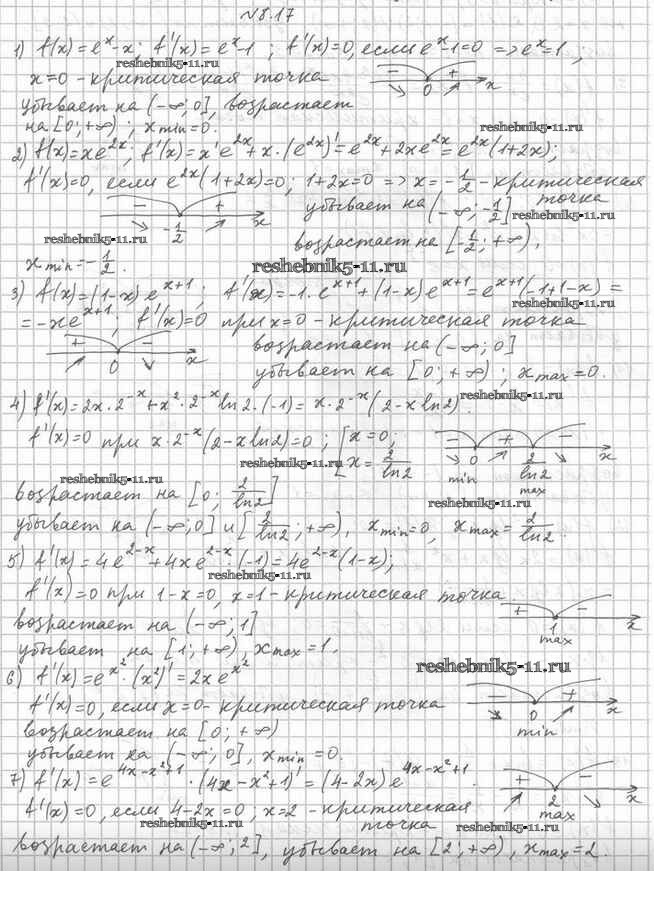 №8.17
1) f(x)=eˣ-x; f'(x)=eˣ-1 ; f'(x)=0, если eˣ-1=0 => eˣ=1 ;
reshebnik5-11.ru
x=0 - критическая точка
- + 0 x
убывает на (-∞; 0], возрастает
на [0; +∞) ; x min=0.
reshebnik5-11.ru
2) f(x)=xe²ˣ; f'(x)=x'e²ˣ+x·(e²ˣ)'=e²ˣ+2xe²ˣ=e²ˣ(1+2x);
f'(x)=0, если e²ˣ(1+2x)=0; 1+2x=0 => x=-1/2 - критическая
точка
- + -1/2 x
убывает на (-∞; -1/2]
reshebnik5-11.ru
reshebnik5-11.ru
возрастает на [-1/2; +∞),
x min=-1/2.
reshebnik5-11.ru
3) f(x)=(1-x)eˣ⁺¹; f'(x)=-1·eˣ⁺¹+(1-x)eˣ⁺¹=eˣ⁺¹(-1+1-x)=
reshebnik5-11.ru
=-xeˣ⁺¹; f'(x)=0 при x=0 - критическая точка
+ - 0 x
возрастает на (-∞; 0]
убывает на [0; +∞) ; x max=0.
reshebnik5-11.ru
4) f'(x)=2x·2⁻ˣ+x²·2⁻ˣln2·(-1)=x·2⁻ˣ(2-xln2).
f'(x)=0 при x·2⁻ˣ(2-xln2)=0; [x=0; x=2/ln2
- + - 0 2/ln2 x
min max
reshebnik5-11.ru
reshebnik5-11.ru
возрастает на [0; 2/ln2]
reshebnik5-11.ru
убывает на (-∞;0] и [2/ln2; +∞), x min=0, x max=2/ln2.
5) f'(x)=4e²⁻ˣ+4xe²⁻ˣ·(-1)=4e²⁻ˣ(1-x);
reshebnik5-11.ru
f'(x)=0 при 1-x=0, x=1 - критическая точка
+ - 1 x
max
возрастает на (-∞; 1]
убывает на [1; +∞), x max=1.
reshebnik5-11.ru
6) f'(x)=eˣ²·(x²)'=2xeˣ²
f'(x)=0, если x=0- критическая точка
- + 0 x
min
возрастает на [0; +∞)
убывает на (-∞; 0], x min=0.
7) f'(x)=e⁴ˣ⁻ˣ²⁺¹·(4x-x²+1)'=(4-2x)e⁴ˣ⁻ˣ²⁺¹.
+ - 2 x
max
f'(x)=0, если 4-2x=0; x=2 - критическая
точка
reshebnik5-11.ru
reshebnik5-11.ru
возрастает на (-∞; 2], убывает на [2; +∞), x max=2.